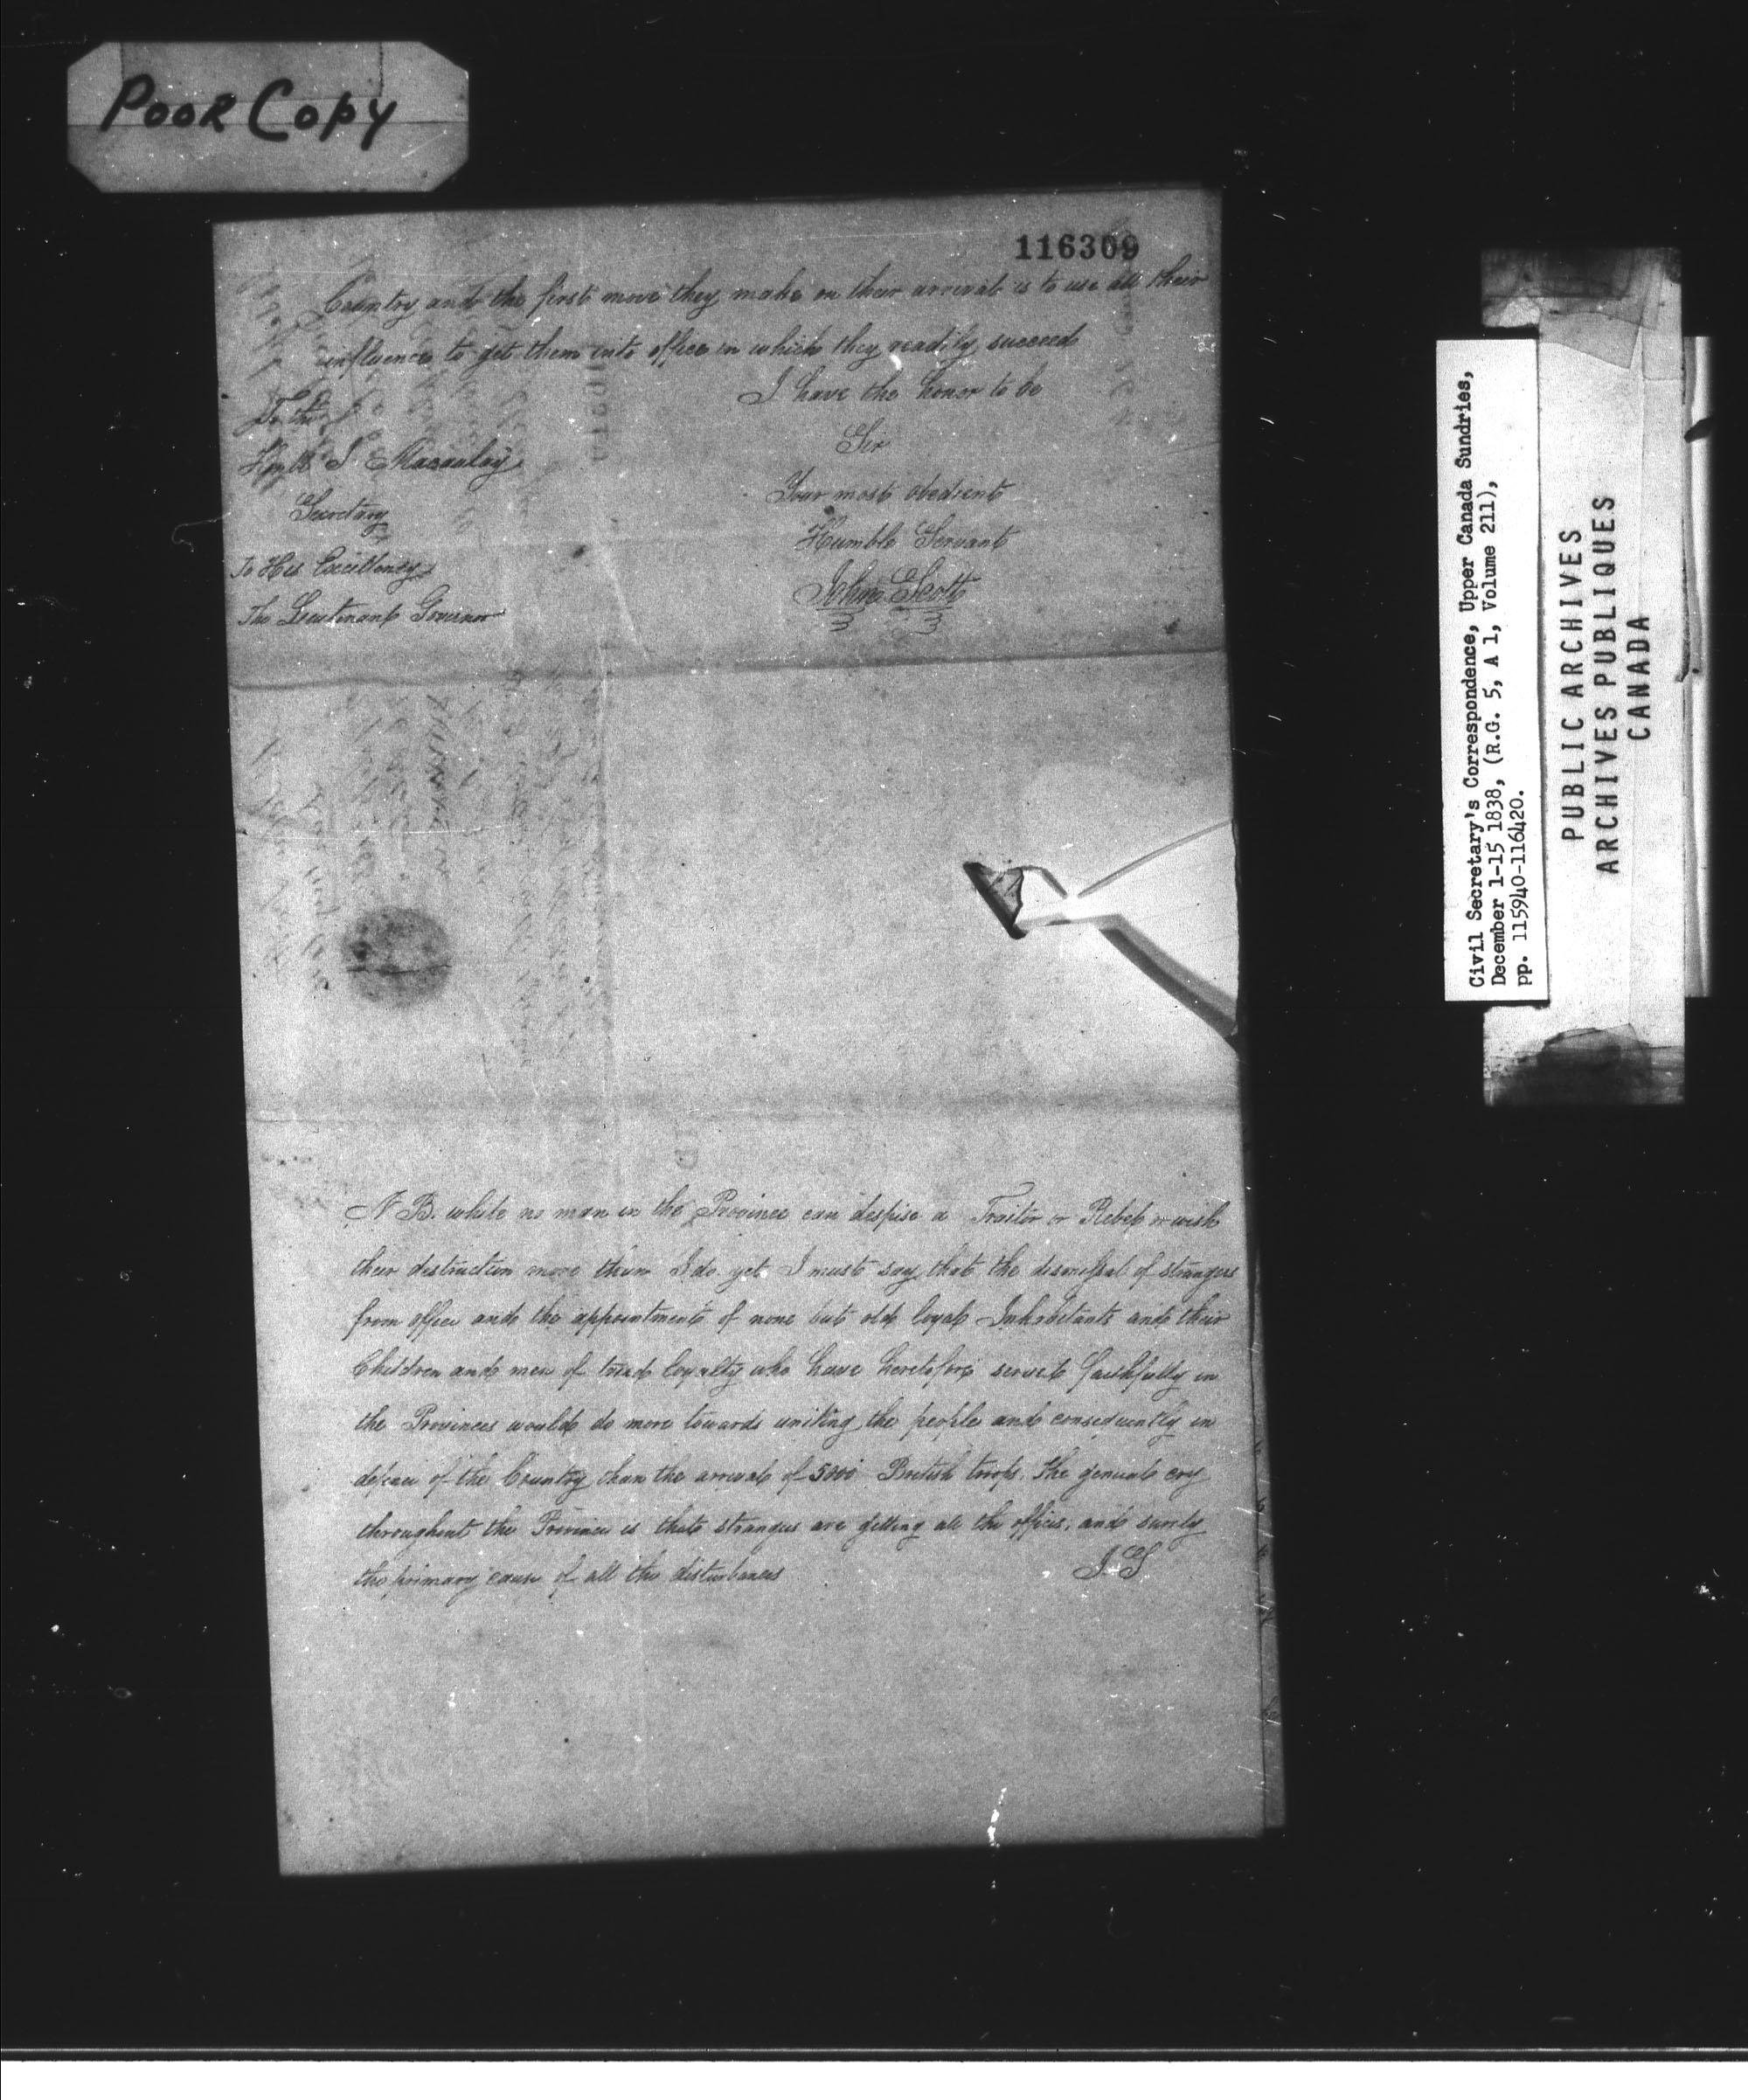 Poor Copy
116309
Country and the first move they make on their arrival is to use all their
influence to get them into office in which they readily succeed
I have the honor to be
Sir
Your most obedient
Humble Servant
John Scott
To the
Honble J. Macaulay
Secretary
To His Excellency
The Lieutenant Governor
N B. while no man in the Province can despise a Traitor or Rebel or wish
their distruction more than I do yet I must say that the dismissal of strangers
from office and the appointment of none but old loyal Inhabitants and their
Children and men of tried loyalty who have heretofore served faithfully in
the Provinces would do more towards uniting the people and consequently in
defence of the Country than the arrival of 5000 British troops. The general cry
throughout the Province is that strangers are getting all the offices, and surely
the primary cause of all the disturbances
J S
Civil Secretary's Correspondence, Upper Canada Sundries,
December 1-15 1838, (R.G. 5, A 1, Volume 211),
pp. 115940-116420.
PUBLIC ARCHIVES
ARCHIVES PUBLIQUES
CANADA